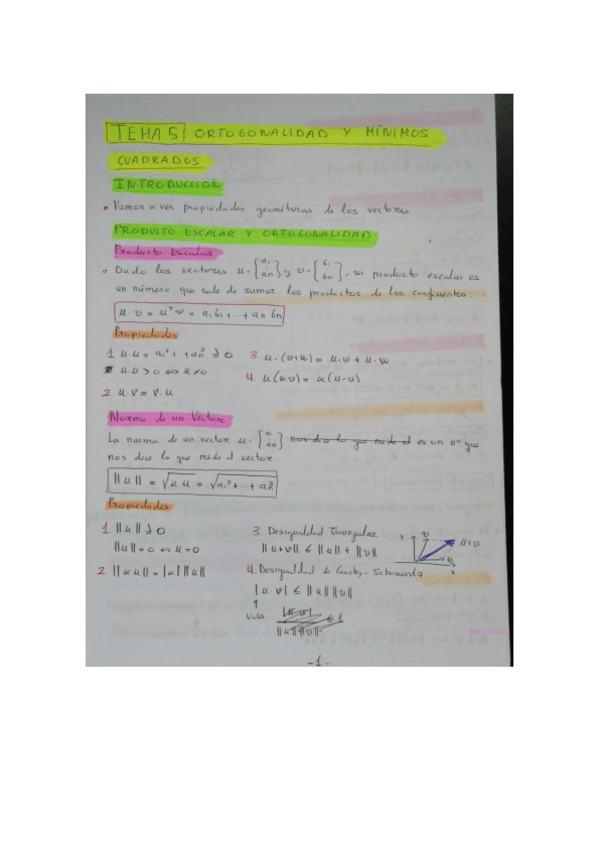 TEMA 5 ORTOGONALIDAD Y MÍNIMOS
CUADRADOS
INTRODUCCIÓN
• Vamos a ver propiedades geométricas de los vectores
PRODUCTO ESCALAR Y ORTOGONALIDAD
Producto Escalar
• Dado los vectores u = [a₁ an] y v = [b₁ bn], su producto escalar es
un número que sale de sumar los productos de los
u·v = uᵀv = a₁b₁ + ··· + an bn
Propiedades
1 u.u = a₁² + ··· + an² ≥ 0
u.u > 0 ⇔ u ≠ 0
2 u.v = v.u
3 u.(v+w) = u.v + u.w
4. u(αv) = α(u·v)
Norma de un Vector
La norma de un vector u = [a₁ an] nos dice lo que mide el es un nº que
nos dice lo que mide el vector.
||u|| = √u.u = √a₁² + ··· + an²
Propiedades
1 ||u|| ≥ 0
||u|| = 0 ⇔ u = 0
2 ||αu|| = |α| ||u||
3. Desigualdad Triangular
||u+v|| ≤ ||u|| + ||v||
Y v u+v
u x
4. Desigualdad de Cauchy-Schwarz
|u.v| ≤ ||u|| ||v||
↑
|u·v| ≤ 1
||u|| ||v||
-1-